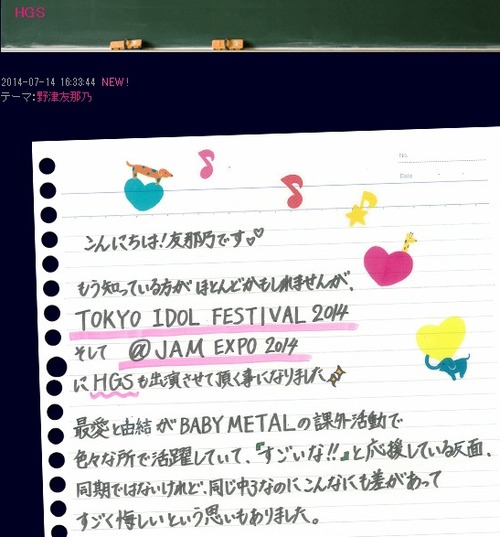 HGS
2014-07-14 16:33:44 NEW!
テーマ:野津友那乃
No.
Date
こんにちは!友那乃です♡♡
もう知っている方がほとんどかもしれませんが、
TOKYO IDOL FESTIVAL 2014
そして @JAM EXPO 2014
にHGSも出演させて頂く事になりました
最愛と由結がBABYMETALの課外活動で
色々な所で活躍していて、『すごいな!!』と応援している反面、
同期ではないけれど、同じ中3なのにこんなにも差があって
すごく悔しいという思いもありました。